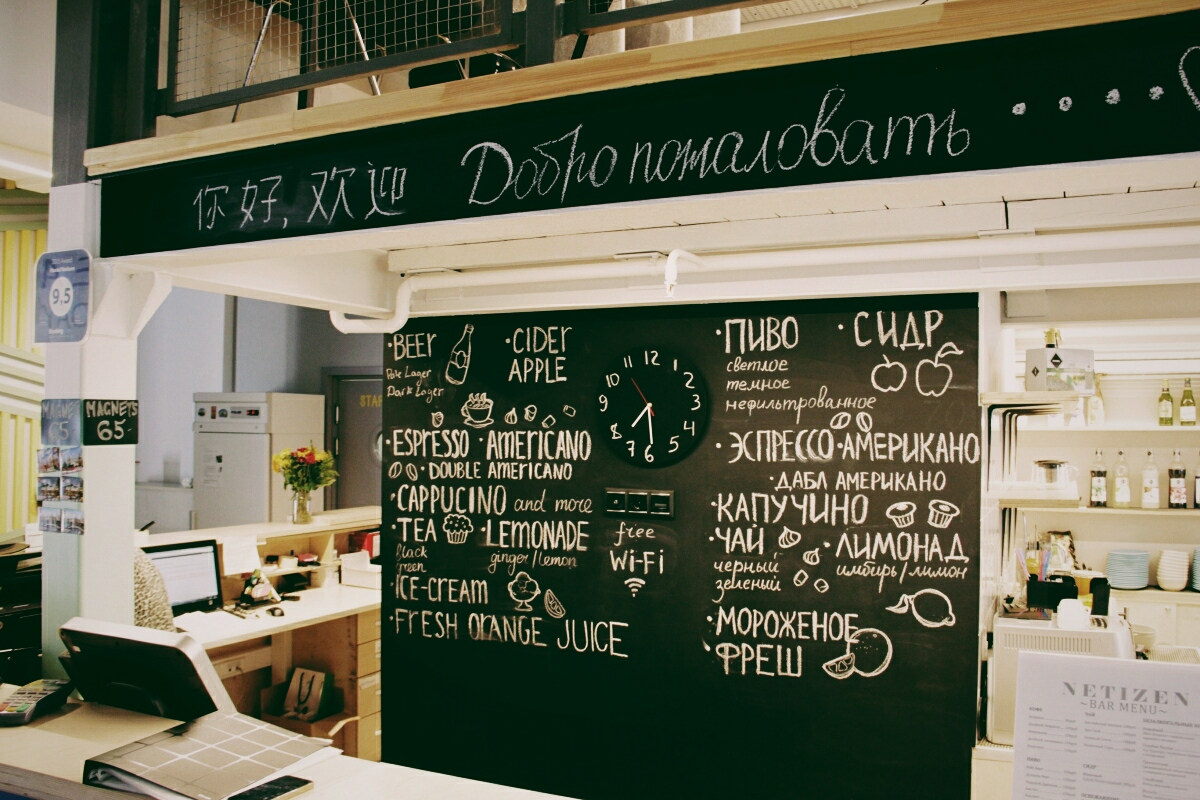 你好, 欢迎 Добро пожаловать
9.5
MAGNETS
65
MAGNETS
65
STAF
· BEER
Pale Lager
Dark Lager
· CIDER
APPLE
· ESPRESSO · AMERICANO
· DOUBLE AMERICANO
· CAPPUCINO and more
· TEA
black
green
· LEMONADE
ginger/lemon
· ICE-CREAM
· FRESH ORANGE JUICE
12
1
2
3
4
5
6
7
8
9
10
11
free
Wi-Fi
· ПИВО
светлое
темное
нефильтрованное
· СИДР
· ЭСПРЕССО · АМЕРИКАНО
· ДАБЛ АМЕРИКАНО
· КАПУЧИНО
· ЧАЙ
черный
зеленый
· ЛИМОНАД
имбирь/лимон
· МОРОЖЕНОЕ
· ФРЕШ
NETIZEN
~BAR MENU~